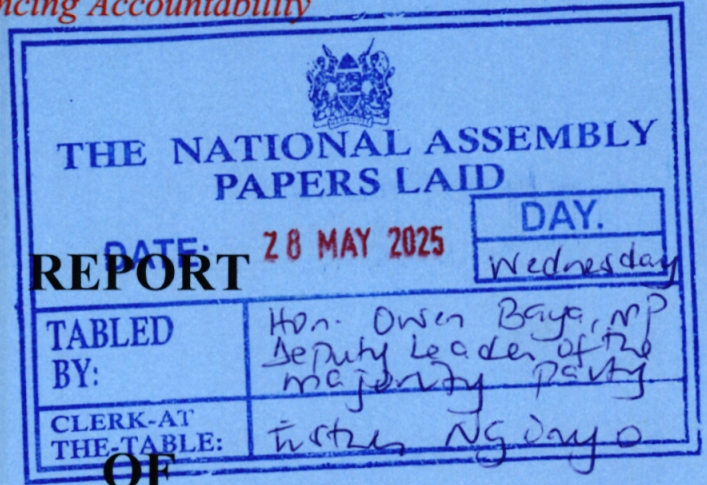 ncing Accountability
THE NATIONAL ASSEMBLY
PAPERS LAID
DATE: 28 MAY 2025
DAY.
Wednesday
REPORT
TABLED BY:
Hon. Owen Baya, MP
Deputy Leader of the
majority Party
CLERK-AT
THE-TABLE:
OF